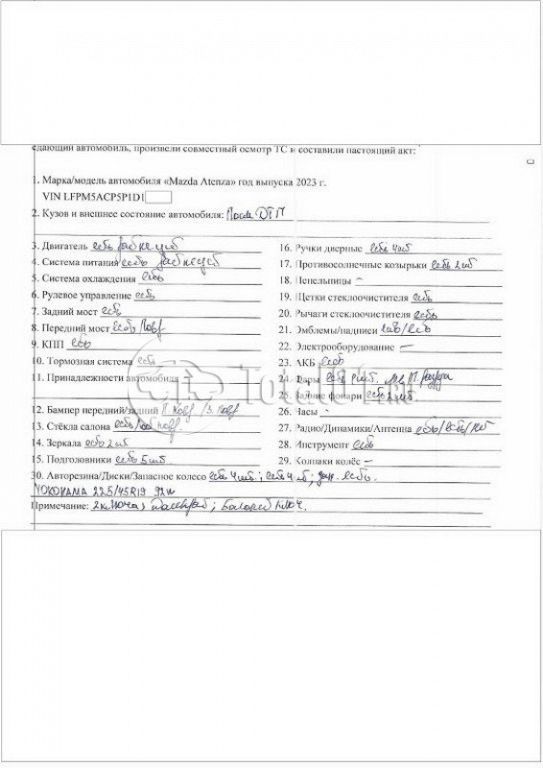 едающий автомобиль, произвели совместный осмотр ТС и составили настоящий акт:
1. Марка/модель автомобиля «Mazda Atenza» год выпуска 2023 г.
VIN LFPM5ACP5P1D1
2. Кузов и внешнее состояние автомобиля: После ДТП
3. Двигатель есть
4. Система питания есть
5. Система охлаждения есть
6. Рулевое управление есть
7. Задний мост есть
8. Передний мост есть / повр
9. КПП есть
10. Тормозная система есть
11. Принадлежности автомобиля
12. Бампер передний/задний П. повр / З. повр
13. Стёкла салона есть повр
14. Зеркала есть 2 шт
15. Подголовники есть 5 шт
16. Ручки дверные есть 4 шт
17. Противосолнечные козырьки есть 2 шт
18. Пепельницы –
19. Щетки стеклоочистителя есть
20. Рычаги стеклоочистителя есть
21. Эмблемы/надписи есть/есть
22. Электрооборудование –
23. АКБ есть
24. Фары есть
25. Задние фонари есть 2 шт
26. Часы –
27. Радио/Динамики/Антенна есть/есть/
28. Инструмент есть
29. Колпаки колёс –
30. Авторезина/Диски/Запасное колесо есть 4 шт; есть 4 шт; есть.
YOKOHAMA 225/45R19 92w
Примечание: 2 ключа; ; ключ.
TotalO1.ru